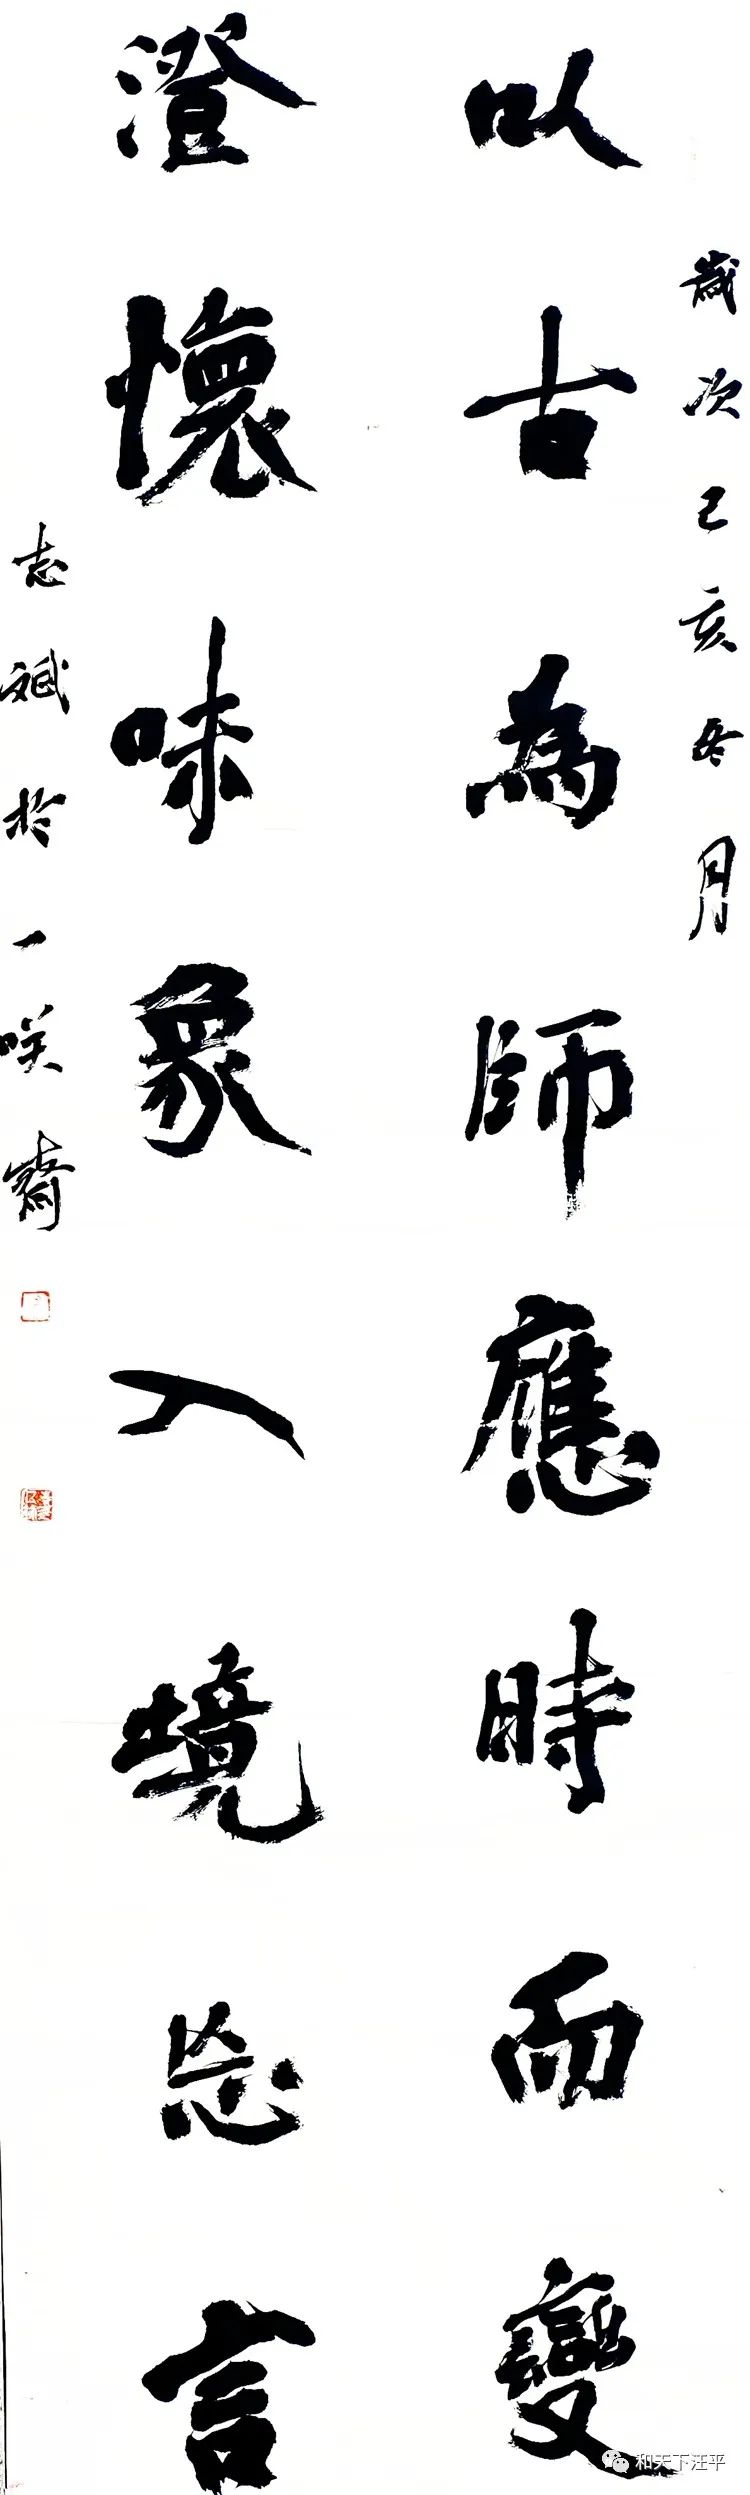 歲次己亥冬月
以古為師應時而變
澄懷味象入境忘言
志斌於一笑齋
和天下汪平